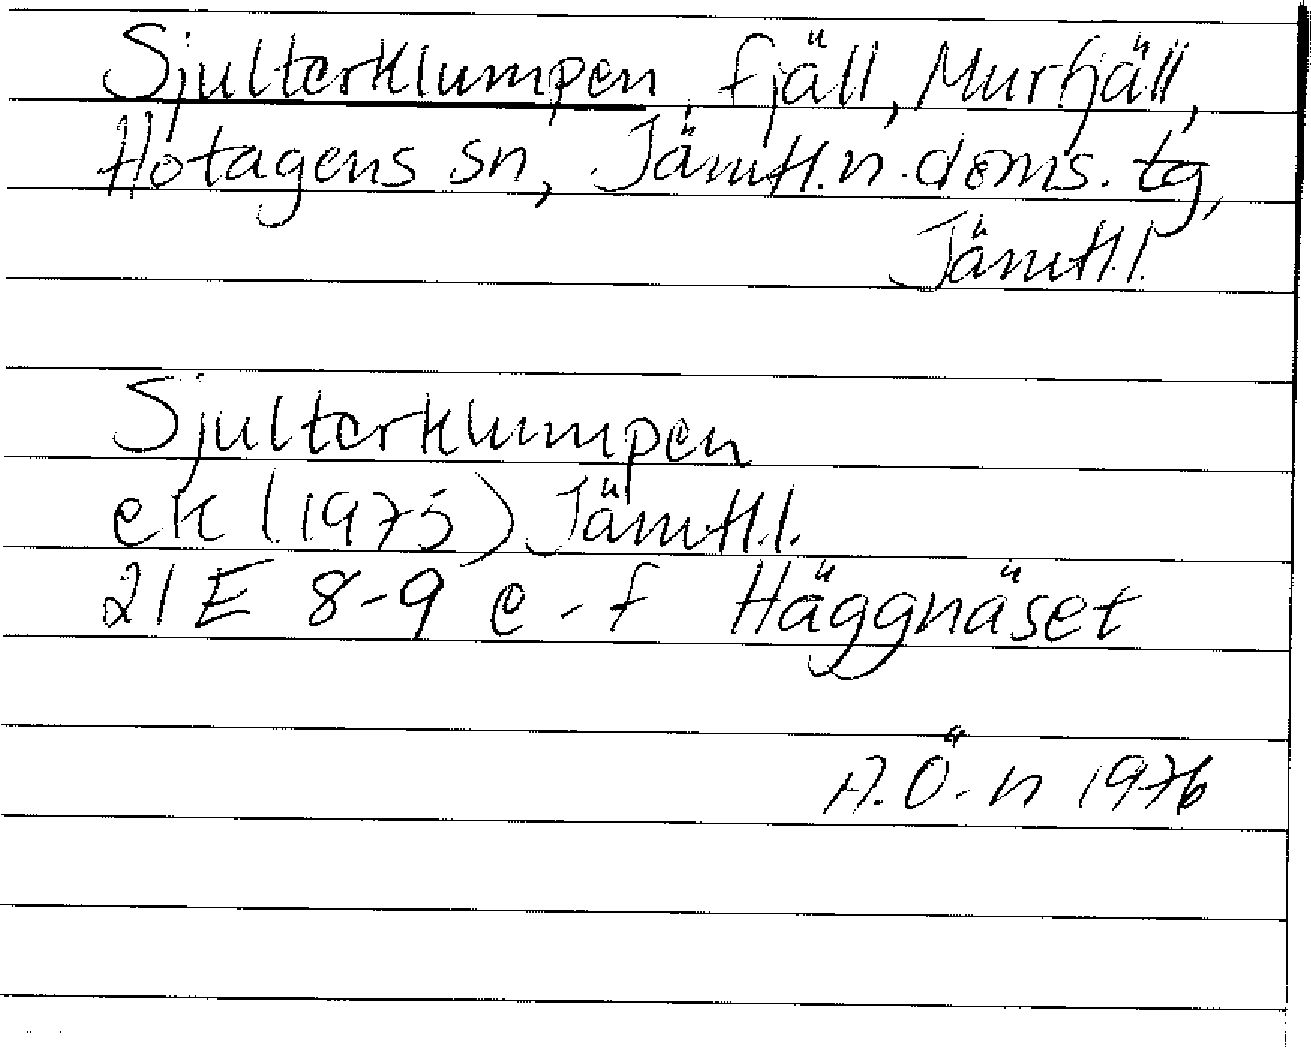 Sjulterklumpen, fjäll, Murfjäll,
Hotagens sn, Jämtl.n. doms. tg,
Jämtl.l.
Sjulterklumpen
ek (1975) Jämtl.l.
21 E 8-9 e-f Häggnäset
A.Ö-n 1976